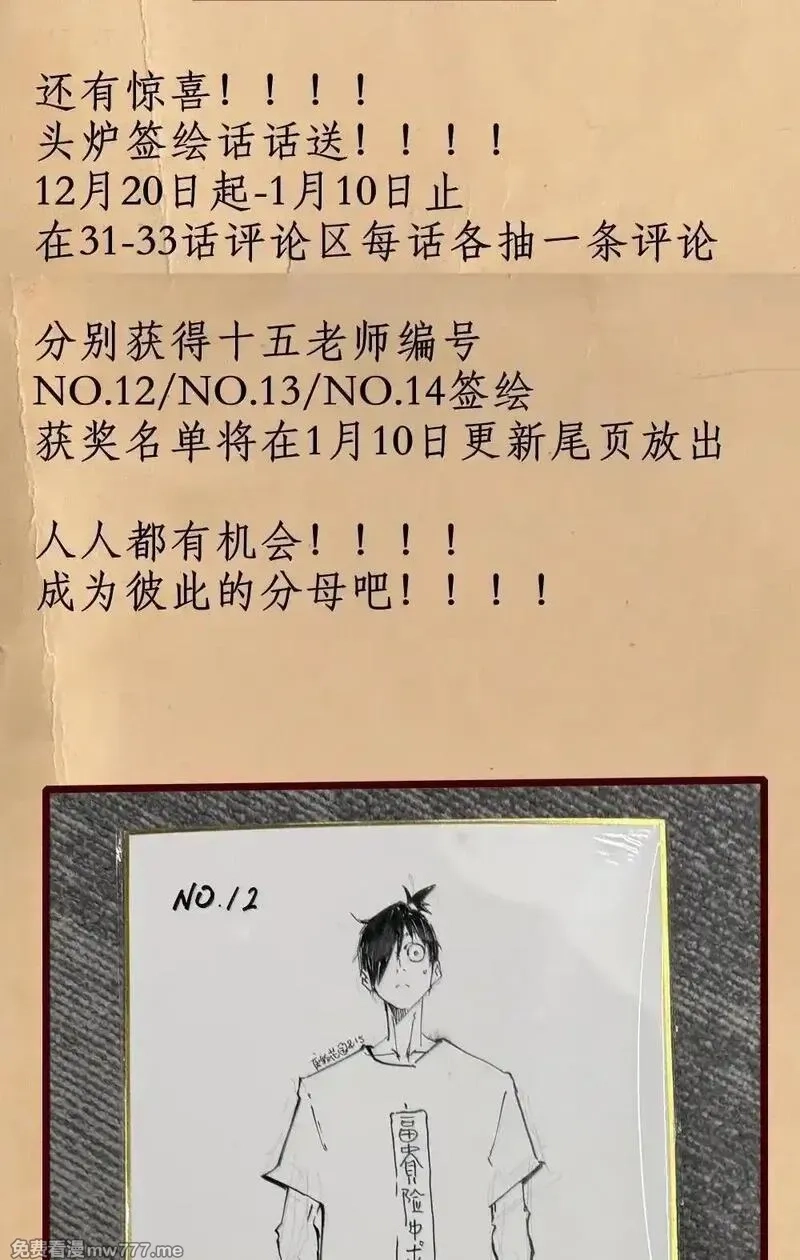 还有惊喜！！！！
头炉签绘话话送！！！！
12月20日起-1月10日止
在31-33话评论区每话各抽一条评论
分别获得十五老师编号
NO.12/NO.13/NO.14签绘
获奖名单将在1月10日更新尾页放出
人人都有机会！！！！
成为彼此的分母吧！！！！
NO.12
富贵险中
免费看漫mw777.me